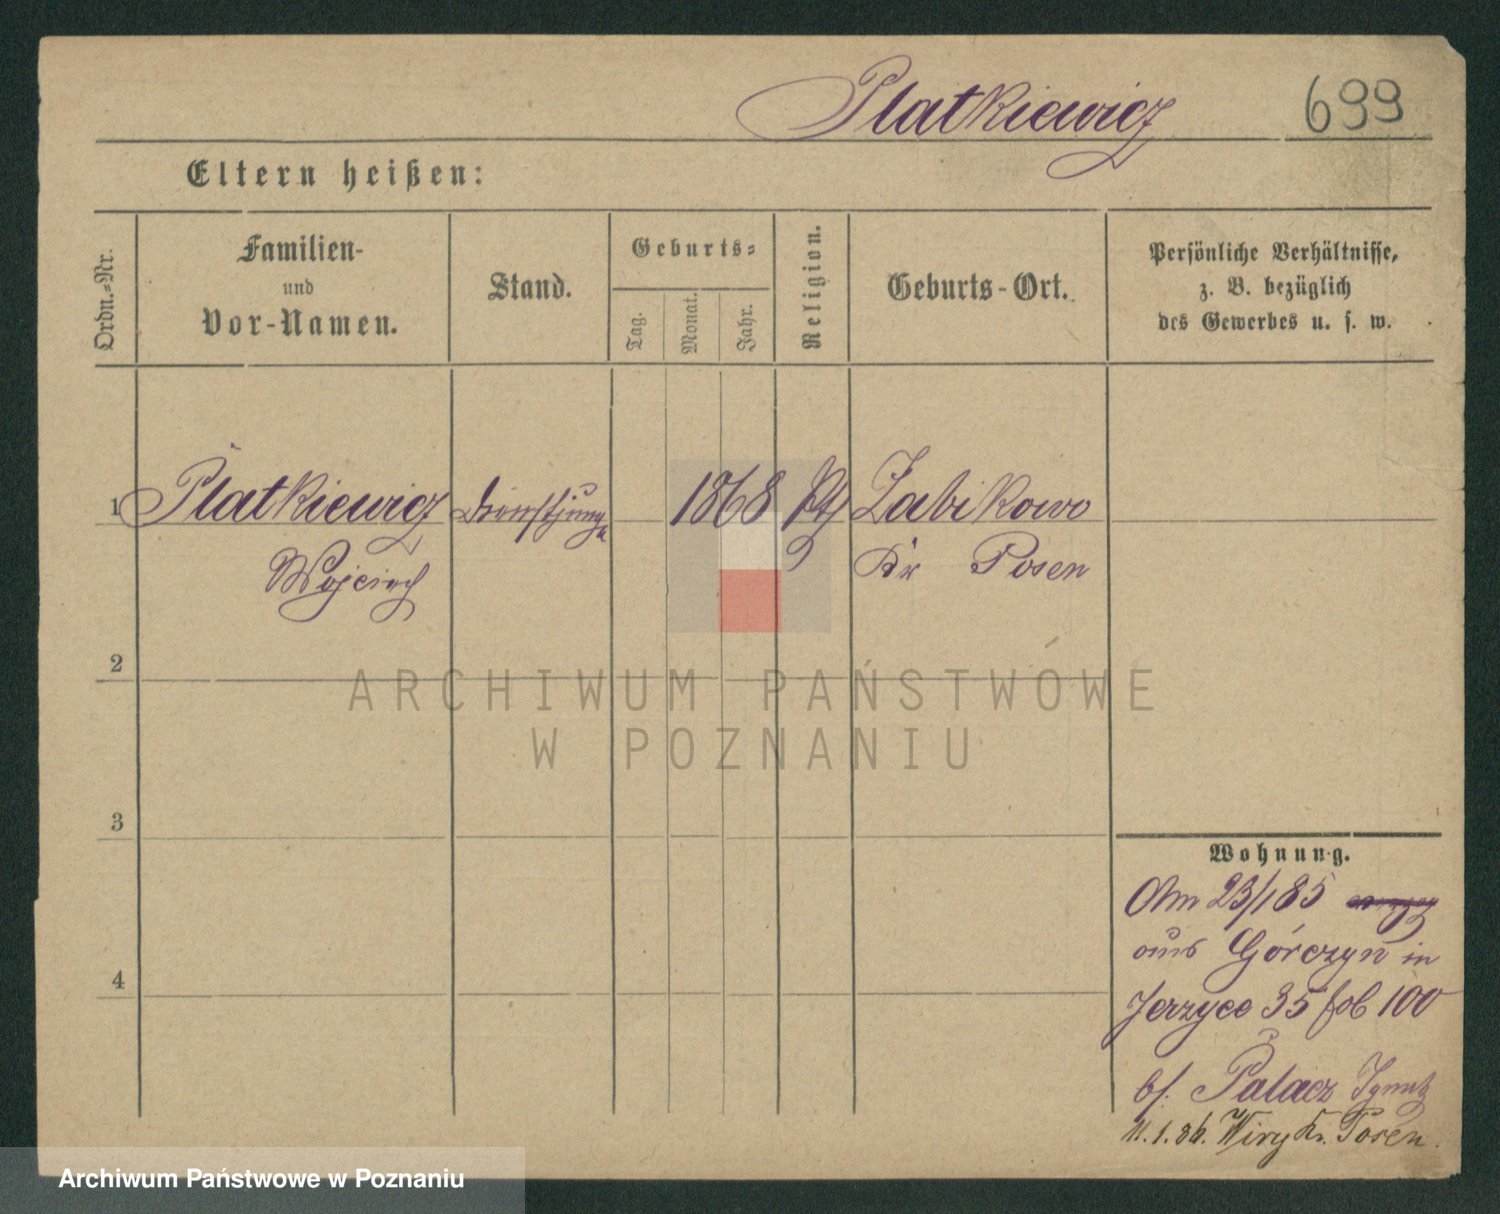 Platkiewicz
699
Eltern heißen:
Ordn.-Nr.
Familien-
und
Vor-Namen.
Stand.
Geburts-
Tag.
Monat.
Jahr.
Religion.
Geburts-Ort.
Persönliche Verhältnisse,
z. B. bezüglich
des Gewerbes u. s. w.
1 Platkiewicz Dienstjunge 1868 kth Zabikowo
Wojciech Kr Posen
2
3
4
Wohnung.
Am 23/1 85
aus Górczyn in
Jerzyce 35 fol 100
b/. Palacz Ignatz
11.1.86. Wiry Kr. Posen.
ARCHIWUM PAŃSTWOWE
W POZNANIU
Archiwum Państwowe w Poznaniu